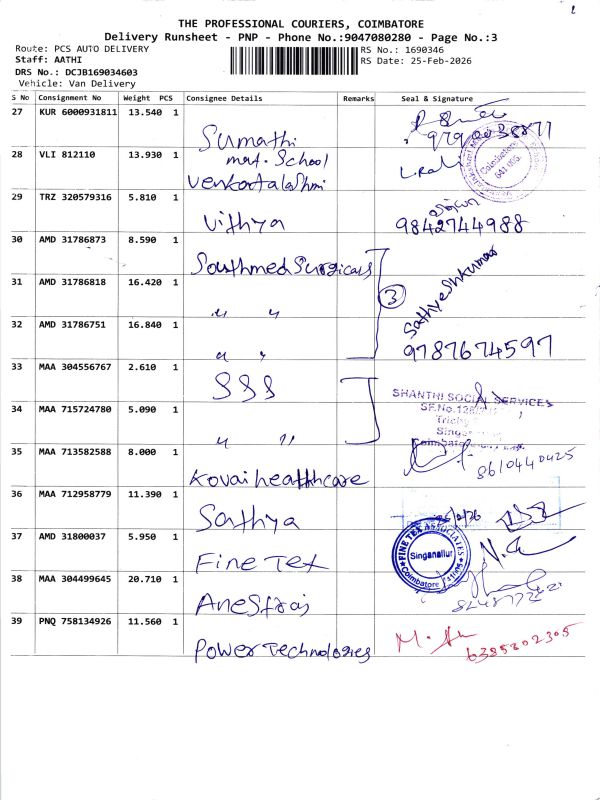 THE PROFESSIONAL COURIERS, COIMBATORE
Delivery Runsheet - PNP - Phone No.:9047080280 - Page No.:3
Route: PCS AUTO DELIVERY
RS No.: 1690346
Staff: AATHI
RS Date: 25-Feb-2026
DRS No.: DCJB169034603
Vehicle: Van Delivery
S No Consignment No Weight PCS Consignee Details Remarks Seal & Signature
27 KUR 6000931811 13.540 1 Sumathi
28 VLI 812110 13.930 1 mat. School
Venkatalashmi
Coimbatore
641 005
29 TRZ 320579316 5.810 1 Vithya
9842744988
30 AMD 31786873 8.590 1 Southmed Surgicals
31 AMD 31786818 16.420 1 〃 〃
3
Sathyeshkumar
32 AMD 31786751 16.840 1 〃 〃
9787674597
33 MAA 304556767 2.610 1 SSS
SHANTHI SOCIAL SERVICES
34 MAA 715724780 5.090 1 〃 〃
35 MAA 713582588 8.000 1 Kovai healthcare
8610440425
36 MAA 712958779 11.390 1 Sathya
37 AMD 31800037 5.950 1 Fine Tex
FINE TEX ASSOCIATES
Singanallur
Coimbatore
38 MAA 304499645 20.710 1
39 PNQ 758134926 11.560 1 Power Technologies
M.
6385802305